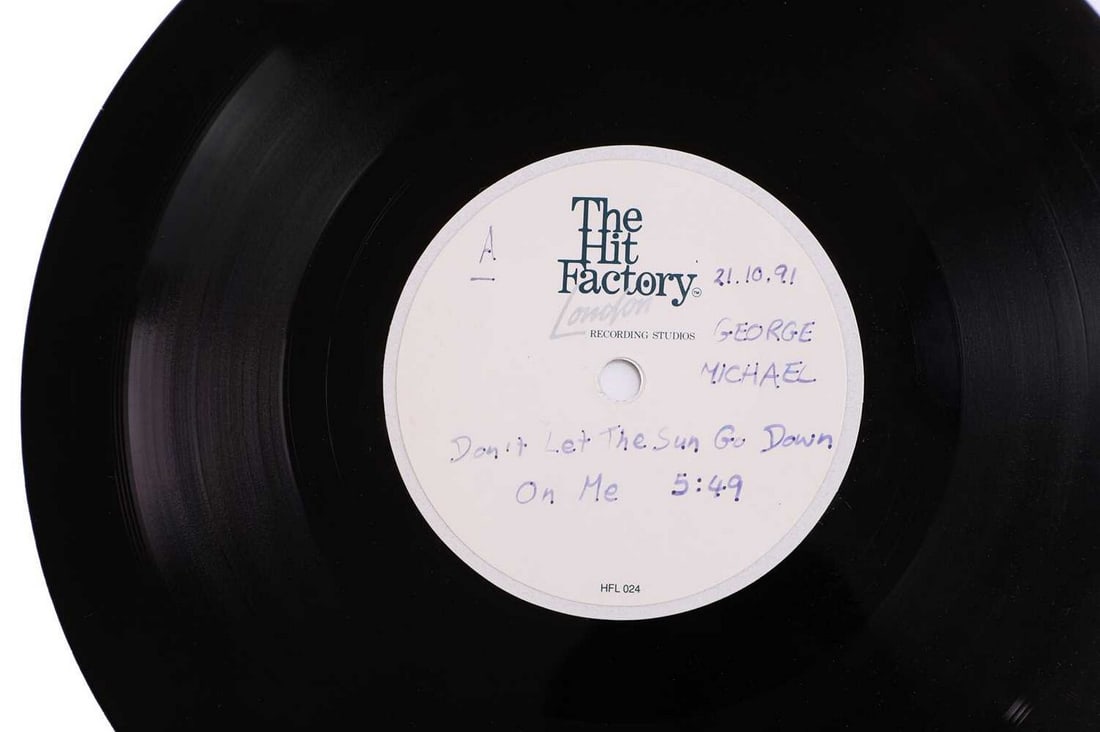 A
The
Hit
Factory™
London
RECORDING STUDIOS
21.10.91
GEORGE
MICHAEL
Don't Let The Sun Go Down
On Me 5:49
HFL 024